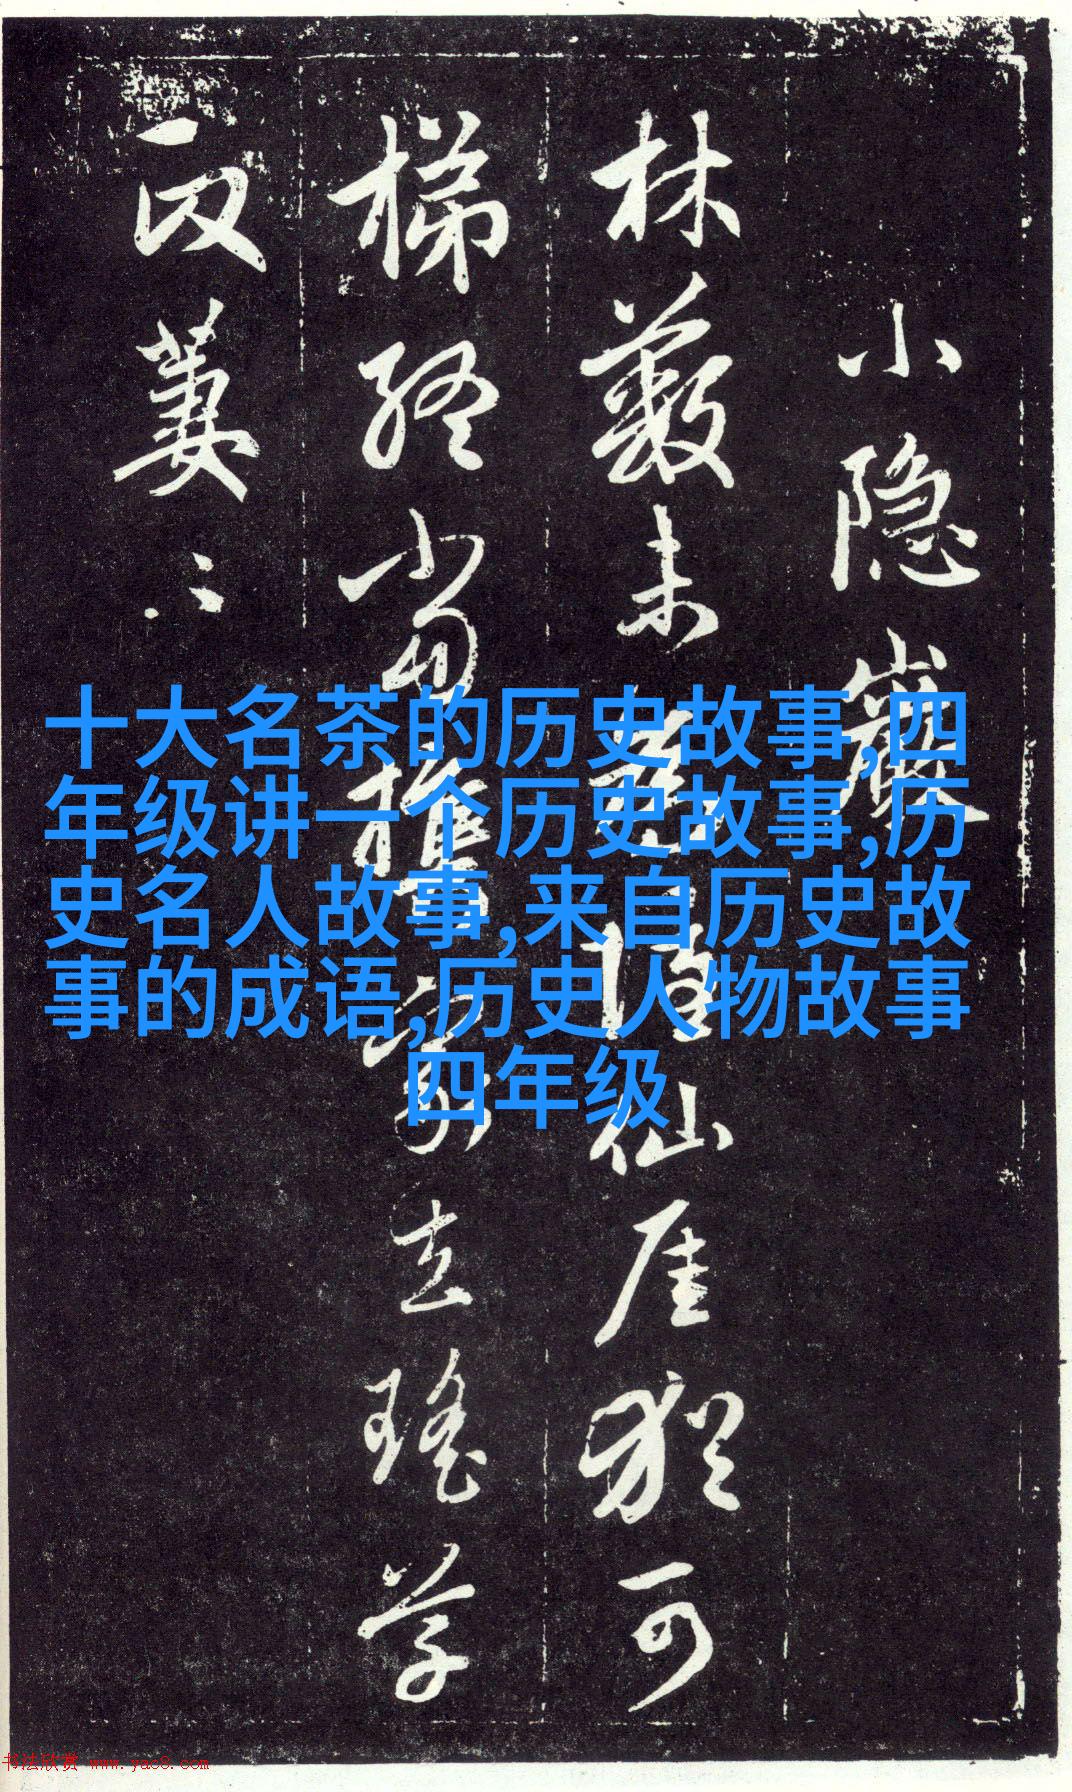 小隐岩
林薮未
仙厓犹可
梯经当
立瑶草
一段萋〻
十大名茶的历史故事,四
年级讲一个历史故事,历
史名人故事,来自历史故
事的成语,历史人物故事
四年级
书法欣赏 www.yac8.com